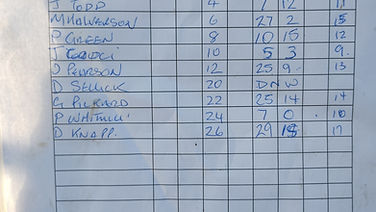 J TODD 4 7 12 11
M HALVERSON 6 27 2 15
P GREEN 8 10 15 12
J 10 5 3 9.
D PEARSON 12 25 9. 13
D SELLICK 20 DNW
G PICKARD 22 25 14 14
P 24 7 0 10
D KNAPP. 26 29 18 17